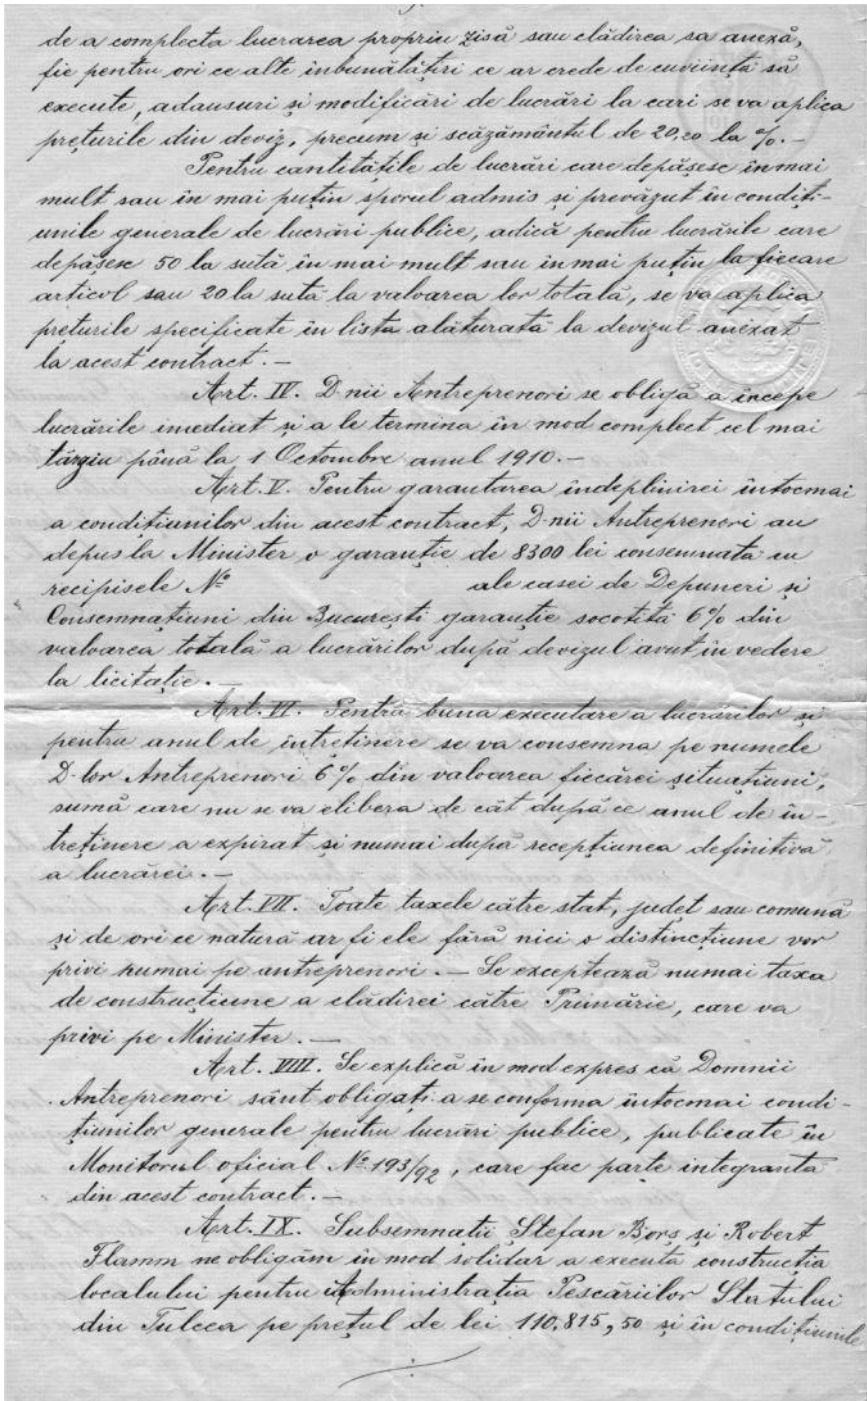 de a complecta lucrarea propriu zisă sau clădirea sa anexă,
fie pentru ori ce alte înbunătățiri ce ar crede de cuviință să
execute, adausuri și modificări de lucrări la cari se va aplica
prețurile din deviz, precum și scăzământul de 20,20 la %.—
Pentru cantitățile de lucrări care depășesc în mai
mult sau în mai puțin sporul admis și prevăzut în condiți-
unile generale de lucrări publice, adică pentru lucrările care
depășesc 50 la sută în mai mult sau în mai puțin la fiecare
articol sau 20 la sută la valoarea lor totală, se va aplica
prețurile specificate în lista alăturată la devizul anexat
la acest contract.—
Art. IV. D-nii Antreprenori se obligă a începe
lucrările imediat și a le termina în mod complect cel mai
târziu până la 1 Octombre anul 1910.—
Art. V. Pentru garantarea îndeplinirei întocmai
a condițiunilor din acest contract, D-nii Antreprenori au
depus la Minister o garanție de 8300 lei consemnată cu
recipisele No ale casei de Depuneri și
Consemnațiuni din București garanție socotită 6% din
valoarea totală a lucrărilor după devizul avut în vedere
la licitație.—
Art. VI. Pentru buna executare a lucrărilor și
pentru anul de întreținere se va consemna pe numele
D-lor Antreprenori 6% din valoarea fiecărei situațiuni,
sumă care nu se va elibera de cât după ce anul de în-
treținere a expirat și numai după recepțiunea definitivă
a lucrărei.—
Art. VII. Toate taxele către stat, județ sau comună
și de ori ce natură ar fi ele fără nici o distincțiune vor
privi numai pe antreprenori.— Se exceptează numai taxa
de construcțiune a clădirei către Primărie, care va
privi pe Minister.—
Art. VIII. Se explică în mod expres că Domnii
Antreprenori sânt obligați a se conforma întocmai condi-
țiunilor generale pentru lucrări publice, publicate în
Monitorul oficial No. 193/92, care fac parte integrantă
din acest contract.—
Art. IX. Subsemnații Ștefan Borș și Robert
Flamm ne obligăm în mod solidar a executa construcția
localului pentru Administrația Pescăriilor Statului
din Tulcea pe prețul de lei 110,815,50 și în condițiunile